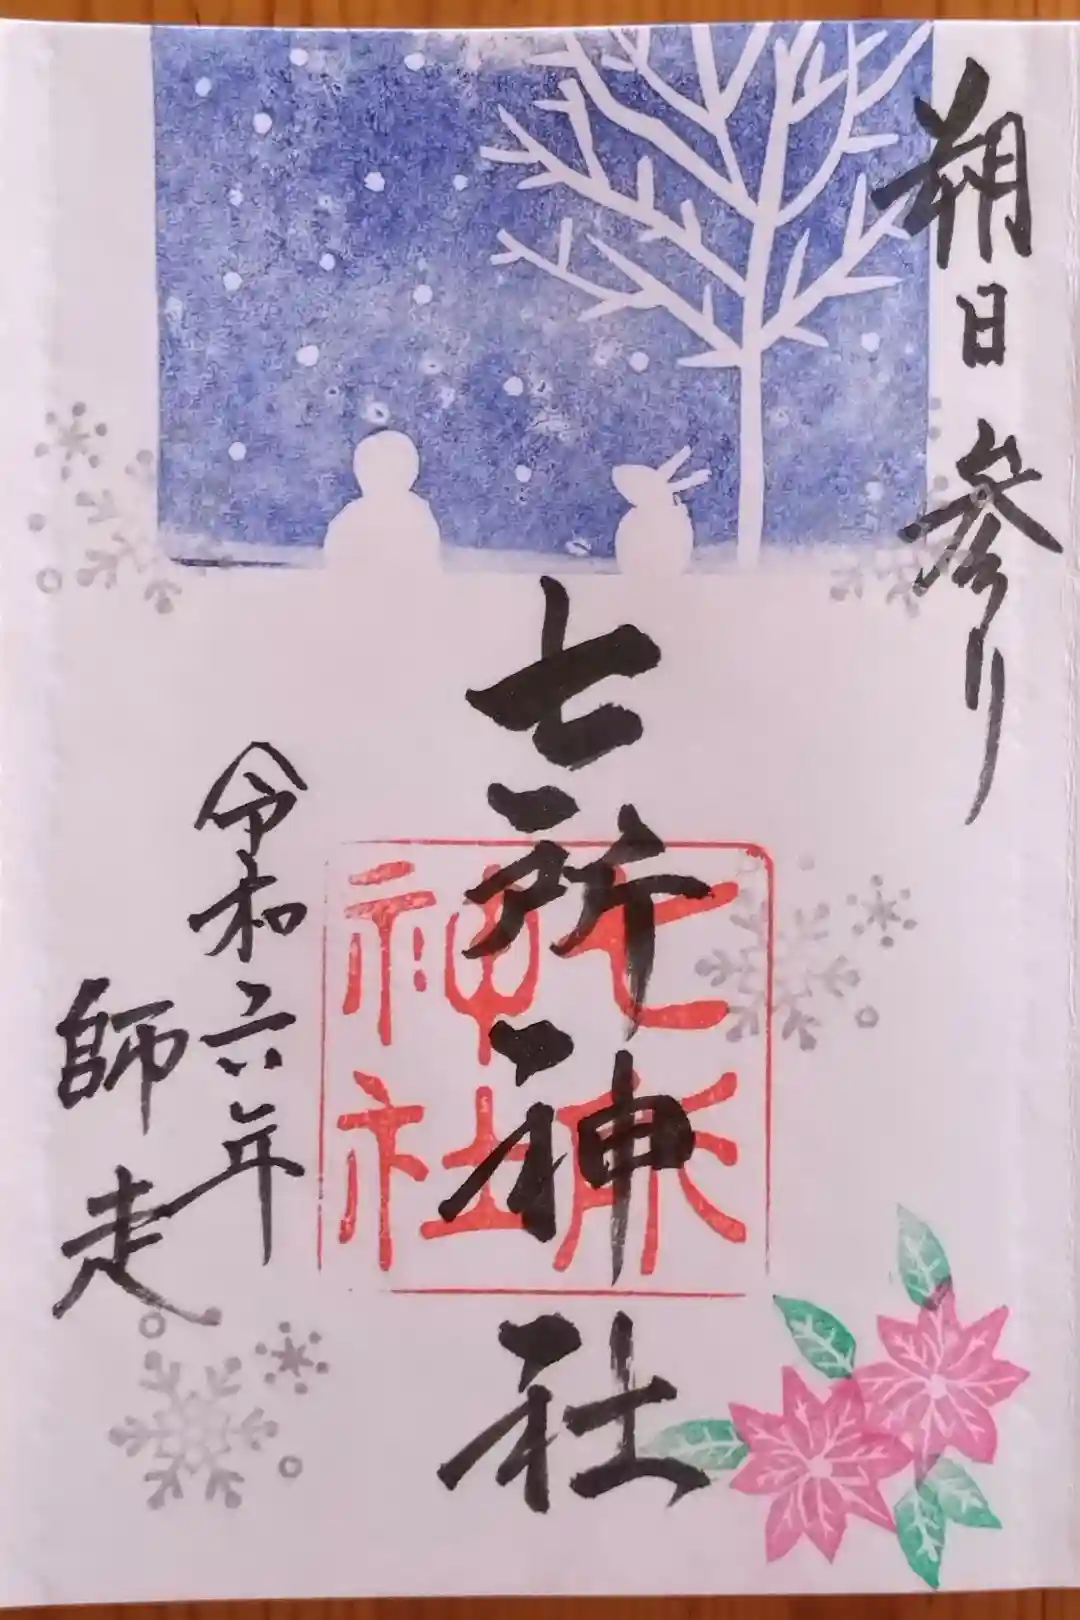 朔日参り
七所神社
七所神社
令和六年
師走